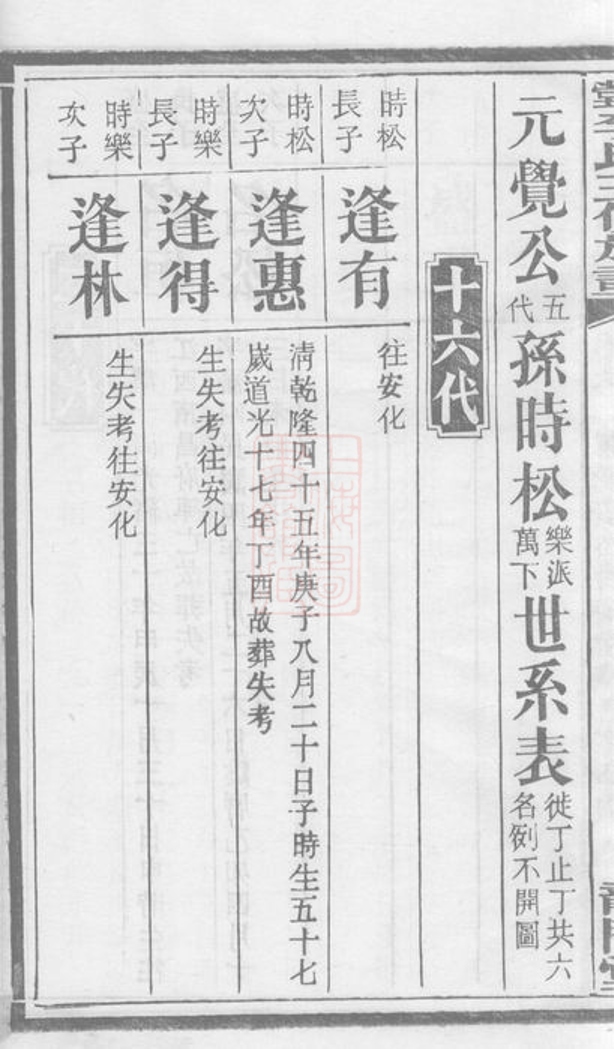 元覺公五代孫時松樂派萬下世系表徙丁止丁共六名例不開圖
十六代
時松長子
逢有
往安化
時松次子
逢惠
清乾隆四十五年庚子八月二十日子時生五十七
歲道光十七年丁酉故葬失考
時樂長子
逢得
生失考往安化
時樂次子
逢林
生失考往安化